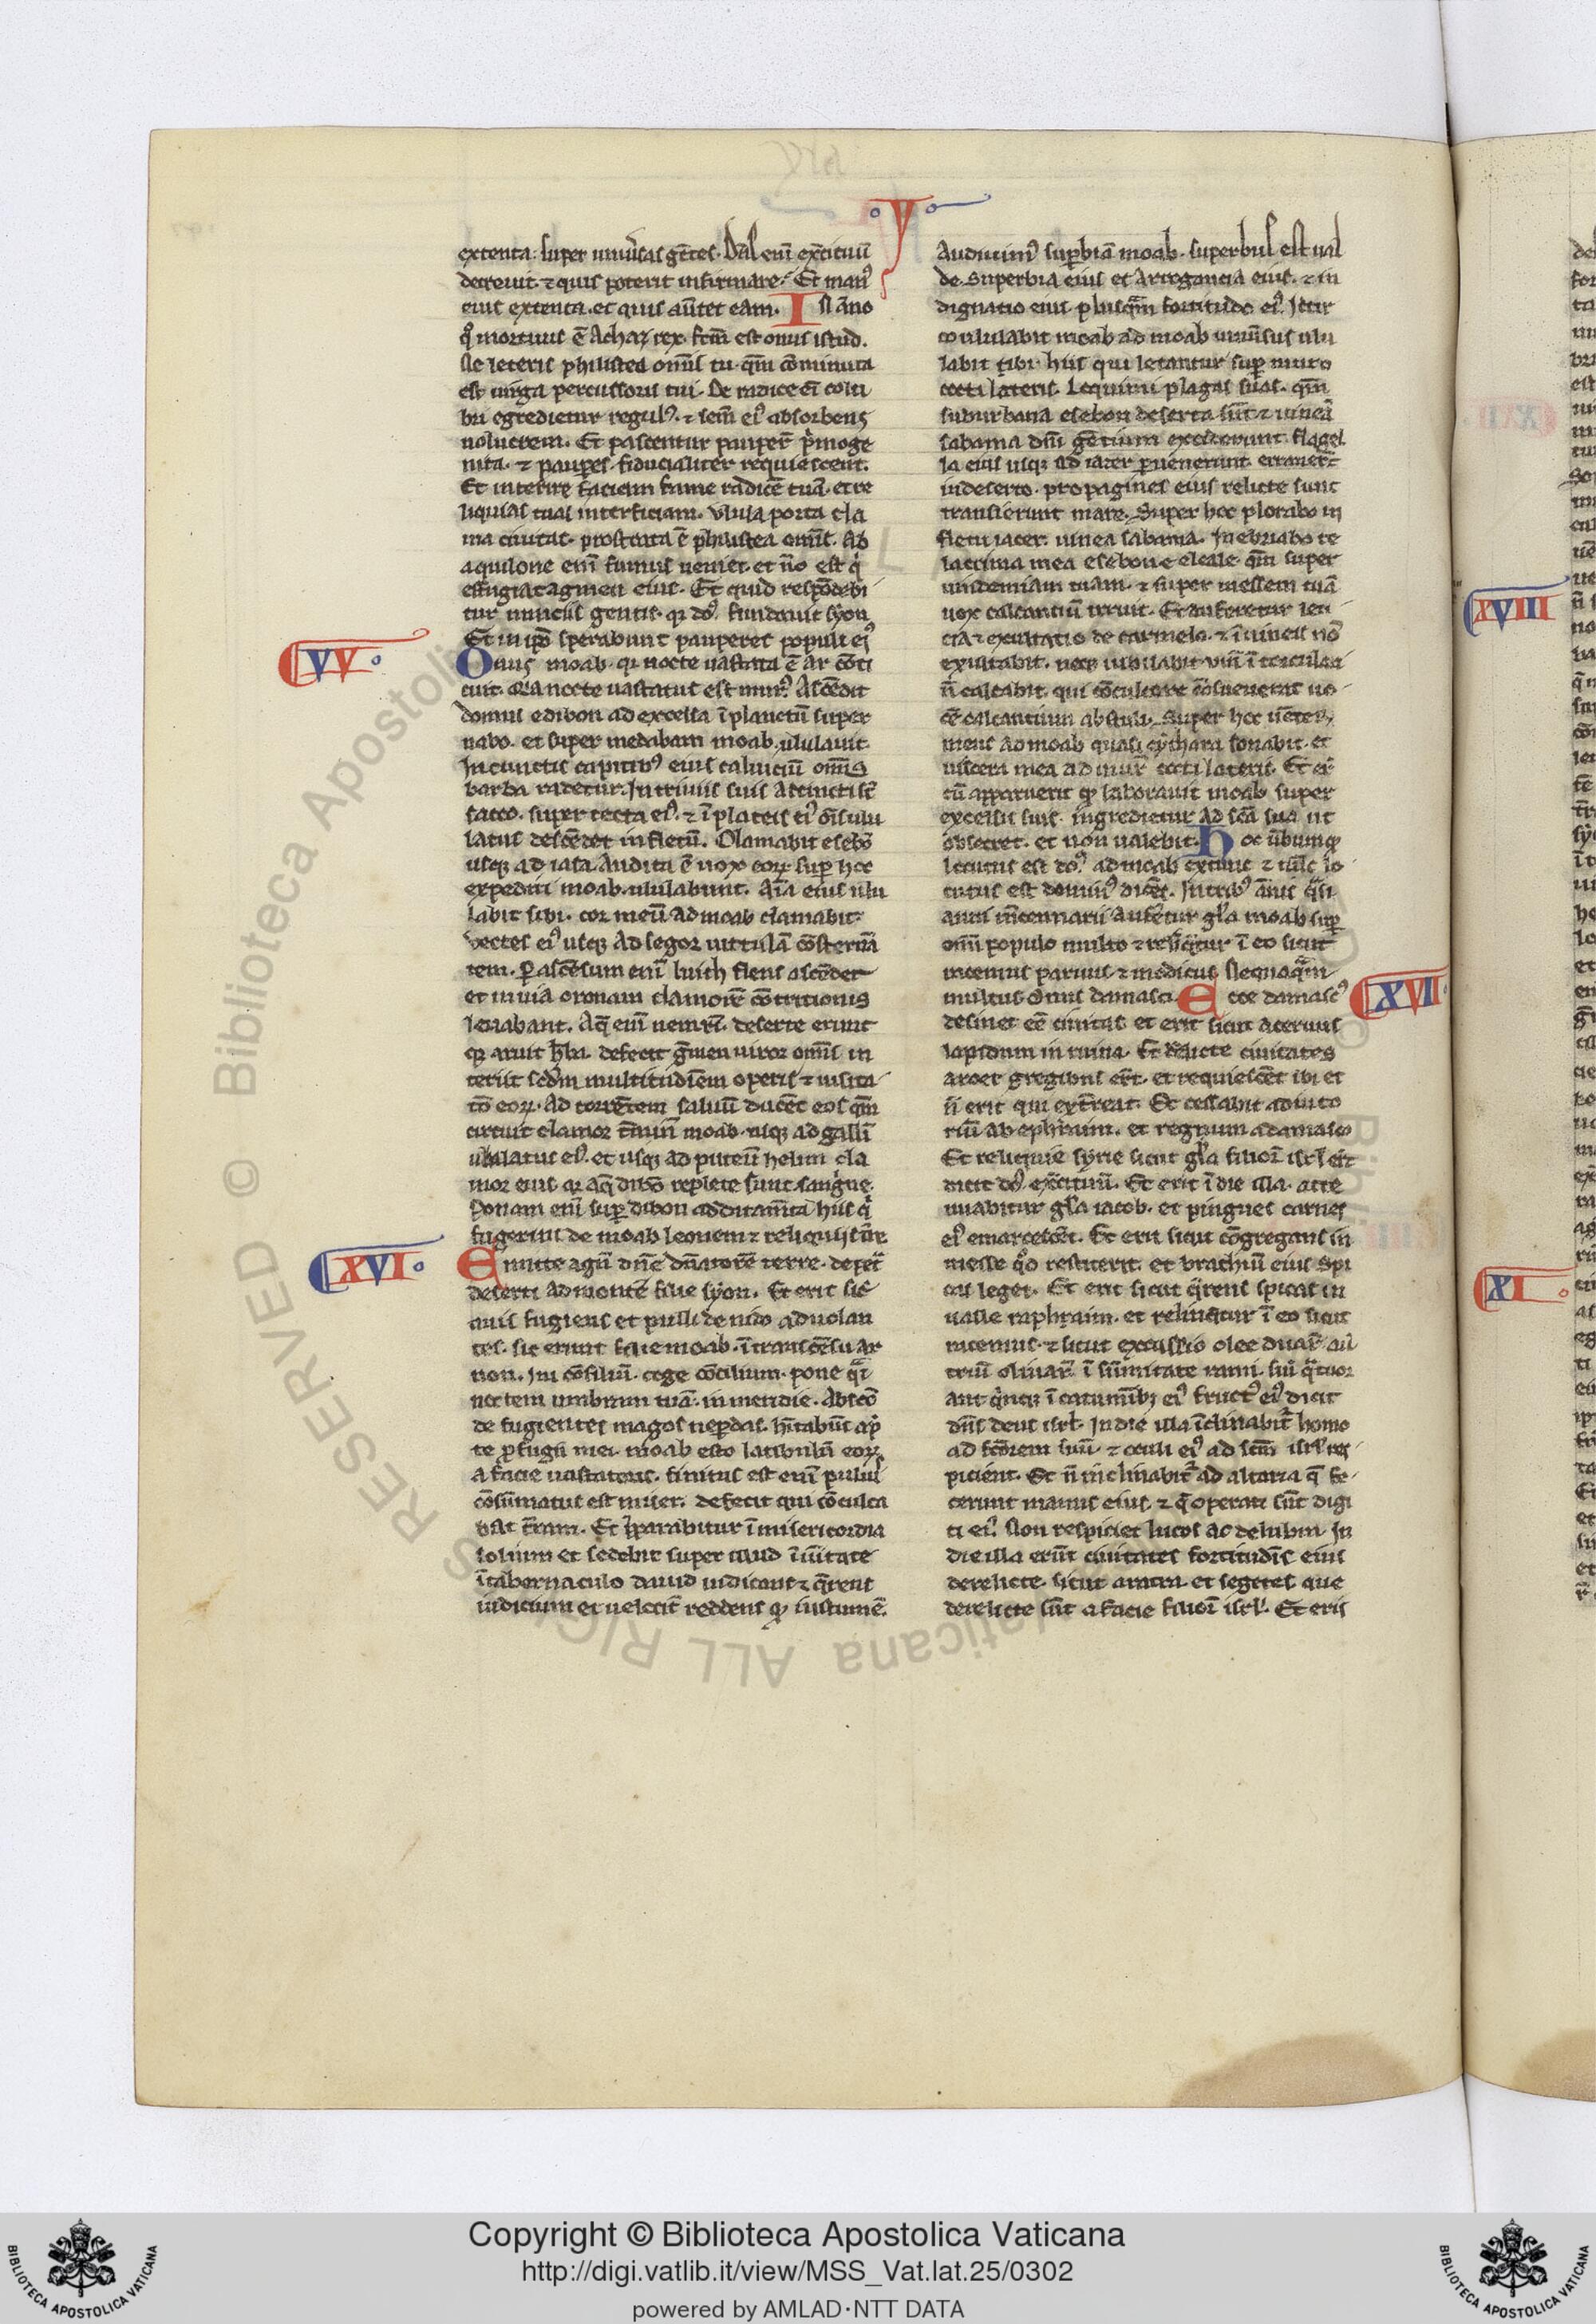 Y
extenta: super uniu̾sas gētes. Dn̄s eni᷑ exc̾ituū
decreuit. ⁊ quis poterit infirmare. Et man᷒
eius extenta. et quis au̾tet eam. In āno
q̊ mortuus ē Achaz rex. fc̄m est onus istud.
Ne leteris philistea om̄is tu. qm̄ cōminuta
est uirga percussoris tui. De radice ei᷑ colu
bri egredietur regul᷒. ⁊ sem̄ ei᷒ absorbens
uolucrem. Et pascentur pauper̄ p̄moge
nita. ⁊ paupes̄. fiducialiter requiescent.
Et interire faciam fame radicē tuā. et re
liquias tuas interficiam. Ulula porta cla
ma ciuitas. prostrata ē philistea om̄is. Ab
aquilone eni᷑ fumus ueniet. et n̄o est q̇
effugiat agmen eius. Et quid respōdebi
tur nunciis gentis. qr dn̄s. fundauit syon.
Et in ip̄o sperabunt pauperes populi ei᷒
XV
Onus moab. qr nocte uastata ē ar cōti
cuit. qr a nocte uastatus est mur᷒. Ascēdit
domus edibon ad excelsa ī planctū super
nabo. et super medabam moab ululauit.
In cunctis capitib᷒ eius caluiciū om̄is
barba radetur. In triuiis suis accincti st̄
sacco. super tecta ei᷒. ⁊ ī plateis ei᷒ ōis ulu
latus descēdet in fletū. Clamabit esebō
usqꝫ ad iasa. Audita ē uox eoꝝ. sup̄ hoc
expediti moab ululabunt. Aīa eius ulu
labit sibi. cor meū ad moab clamabit.
Uectes ei᷒ usqꝫ ad segor uitulā cōsternā
tem. P ascēsum eni᷑ luith flens ascēdet
et in uia oronaim clamorē cōtritionis
leuabant. Aq̄ eni᷑ nemrī. deserte erunt
qr aruit h̄ba. defecit ḡmen uiror om̄is in
teriit scd̄m multitudīem operis ⁊ uisita
tō eoꝝ. Ad torrētem salicū ducēt eos qm̄
circuit clamor t̄minū moab. usqꝫ ad gallī
ululatus ei᷒. et usqꝫ ad puteū helim cla
mor eius qr aq̄ dibō replete sunt sanguīe.
Ponam eni᷑ sup̄ dibon additam̄ta hiis q̇
fugerint de moab leonem ⁊ reliquiis t̄re
XVI
Emitte agnū dn̄e dn̄atorē terre. de petr̄
deserti ad montē filie syon. Et erit sic̄
auis fugiens et pulli de nido aduolan
tes. sic erunt filie moab. ī transcēsu ar
non. Ini cōsiliū. coge cōcilium. pone q̄i
noctem umbram tuā. in meridie. Abscō
de fugientes ⁊ uagos ne ꝑdas. h̄itabūt ap̄
te ꝓfugi mei. moab esto latibulū eoꝝ
a facie uastatoris. finitus est eni᷑ puluis
cōsūmatus est miser. defecit qui cōculca
bat t̄ram. Et p̄parabitur ī misericordia
solium et sedebit super illud ī ūitate
ī tabernaculo dauid iudicans ⁊ q̄rens
iudicium et uelocit̄ reddens qd̄ iustum ē.
Audiuim᷒ suꝑbiā moab. superbus est ual
de. Superbia eius et arrogancia eius. ⁊ in
dignatio eius plusq̄m fortitudo ei᷒. Idcir
co ululabit moab ad moab uniūsus ulu
labit tibi. hiis qui letantur sup̄ muro
cocti lateris. Loquimi plagas suas. qm̄
suburbana esebon deserta sūt ⁊ uineā
sabama dn̄i gētium exciderunt. flagel
la eius usqꝫ ad iazer puenerunt. errauer̄t
in deserto. propagines eius relicte sunt
transierunt mare. Super hoc plorabo in
fletu iacer. uinea sabama. Inebriabo te
lacrima mea esebon ⁊ eleale. qm̄ super
uindemiam tuam. ⁊ super messem tuā
uox calcantiū irruit. Et auferetur leti
cia ⁊ exultatio de carmelo. ⁊ ī uineis nō
exultabit. necꝫ iubilabit uinū ī torculari
n̄ calcabit. qui cōculcare cōsueuerat uo
cē calcantium abstuli. Super hoc uēter
meus ad moab quasi cythara sonabit. et
uiscera mea ad mur̄ cocti lateris. Et er̄
cū apparuerit qd̄ laborauit moab super
excelsis suis. ingredietur ad scā sua ut
obsecret. et non ualebit. Hoc ūbum qd̄
locutus est dn̄s. ad moab extunc ⁊ nūc lo
cutus est domin᷒ dicēs. In trib᷒ ānis q̄si
anni m̄cennarii auferetur gl̄a moab sup̄
omni populo multo ⁊ relinq̄tur ī eo sicut
racemus paruus ⁊ modicus neq̄quam
XVII
multus. Onus damasci. Ecce damasc᷒
desinet eē ciuitas et erit sicut aceruus
lapidum in ruina. Et relicte ciuitates
aroer gregibus er̄t. et requiescēt ibi et
n̄ erit qui ext̄reat. Et cessabit adiuto
riū ab ephraim. et regnum a damasco
Et reliquie syrie sicut gl̄a filior̄ isrl̄ er̄t
dicit dn̄s exc̾ituū. Et erit ī die illa. atte
nuabitur gl̄a iacob. et pingues carnes
ei᷒ emarcescēt. Et erit sicut cōgregans in
messe q̊d restiterit. et brachiū eius spi
cas leget. Et erit sicut q̄rens spicas in
ualle raphraim. et relinq̄tur ī eo sicut
racemus. ⁊ sicut excussio olee duar̄ aū
triū oliuar̄ ī sūmitate rami. siū q̄tuor
aut q̄nqꝫ ī cacuminib᷒ ei᷒ fruct᷒ ei᷒ dicit
dn̄s deus isrl̄. In die illa īclinabit̄ homo
ad fc̄orem suū. ⁊ oculi ei᷒ ad scm̄ isrl̄ res
picient. Et n̄ inclinabit̄ ad altaria q̄ fe
cerunt manus eius. ⁊ q̄ operati sūt digi
ti ei᷒. Non respiciet lucos ac delubra. In
die illa erūt ciuitates fortitudīs eius
derelicte. sicut aratra. et segetes que
derelicte sūt a facie filior̄ isrl̄. Et eris
XVIII
XI
Copyright © Biblioteca Apostolica Vaticana
http://digi.vatlib.it/view/MSS_Vat.lat.25/0302
powered by AMLAD·NTT DATA